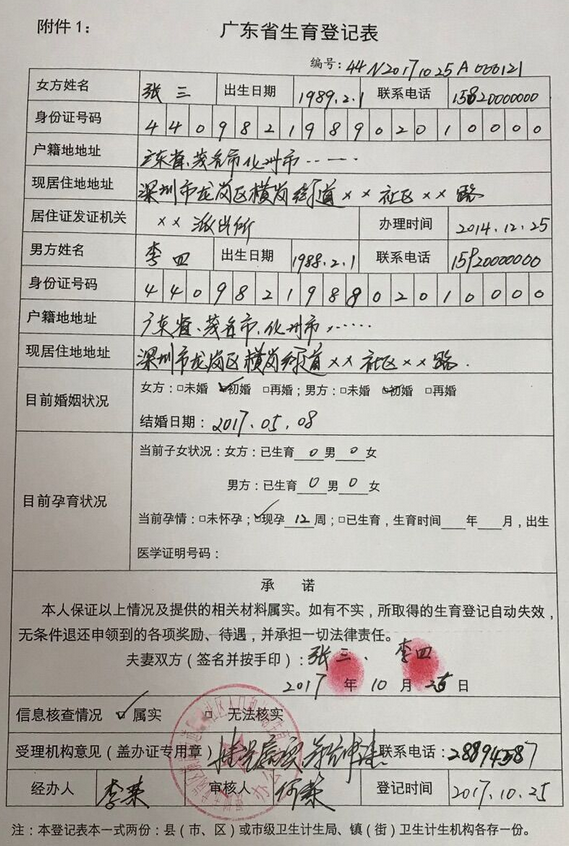 附件1：
广东省生育登记表
编号：44N20171025A000121
女方姓名 张三 出生日期 1989.2.1 联系电话 15820000000
身份证号码 440982198902010000
户籍地地址 广东省、茂名市化州市……
现居住地地址 深圳市龙岗区横岗街道××社区××路
居住证发证机关 ××派出所 办理时间 2014.12.25
男方姓名 李四 出生日期 1988.2.1 联系电话 15920000000
身份证号码 440982198802010000
户籍地地址 广东省、茂名市、化州市、……
现居住地地址 深圳市龙岗区横岗街道××社区××路.
目前婚姻状况 女方：□未婚 ☑初婚 □再婚；男方：□未婚 ☑初婚 □再婚
结婚日期：2017.05.08
目前孕育状况 当前子女状况：女方：已生育 0 男 0 女
男方：已生育 0 男 0 女
当前孕情：□未怀孕；☑现孕 12 周；□已生育，生育时间___年___月，出生
医学证明号码：
承 诺
本人保证以上情况及提供的相关材料属实。如有不实，所取得的生育登记自动失效，
无条件退还申领到的各项奖励、待遇，并承担一切法律责任。
夫妻双方（签名并按手印）：张三、李四
2017 年 10 月 25 日
信息核查情况 ☑ 属实 □ 无法核实
受理机构意见（盖办证专用章） 联系电话：28894587
经办人 李荣 审核人 登记时间 2017.10.25
注：本登记表本一式两份：县（市、区）或市级卫生计生局、镇（街）卫生计生机构各存一份。